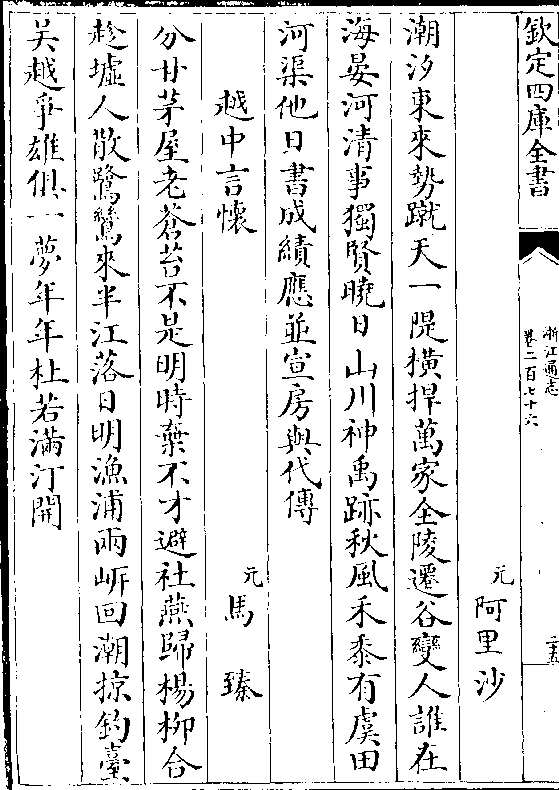 欽定四庫全書
浙江通志
卷二百七十六
二五
元阿里沙
潮汐東來勢蹴天一隄橫捍萬家全陵遷谷變人誰在
海晏河清事獨賢曉日山川神禹跡秋風禾黍有虞田
河渠他日書成績應並宣房與代傳
越中言懷 元馬臻
分廿茅屋老蒼苔不是明時棄不才避社燕歸楊柳合
趁墟人散鷺鷥來半江落日明漁浦兩岍回潮掠釣臺
吴越爭雄俱一夢年年杜若滿汀開